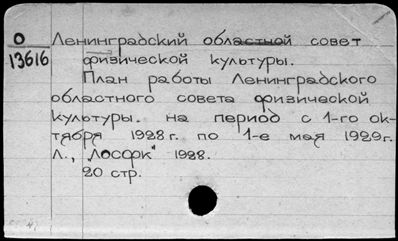 О Ленинградский областной совет
13616 физической культуры.
План работы Ленинградского
областного совета физической
культуры. на период с 1-го ок-
тября 1928 г. по 1-е мая 1929 г.
Л., "Лосфк" 1928.
20 стр.